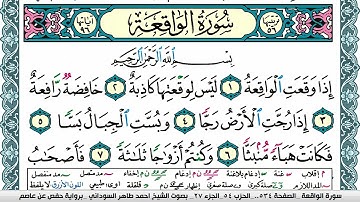 سُورَةُ الْوَاقِعَةِ
بِسْمِ اللَّهِ الرَّحْمَٰنِ الرَّحِيمِ
إِذَا وَقَعَتِ الْوَاقِعَةُ ١ لَيْسَ لِوَقْعَتِهَا كَاذِبَةٌ ٢ خَافِضَةٌ رَّافِعَةٌ
٣ إِذَا رُجَّتِ الْأَرْضُ رَجًّا ٤ وَبُسَّتِ الْجِبَالُ بَسًّا ٥
فَكَانَتْ هَبَاءً مُّنبَثًّا ٦ وَكُنتُمْ أَزْوَاجًا ثَلَاثَةً ٧ فَأَصْحَابُ
سورة الواقعة . الصفحة ٥٣٤. الحزب ٥٤. الجزء ٢٧. بصوت الشيخ احمد طاهر السوداني . برواية حفص عن عاصم